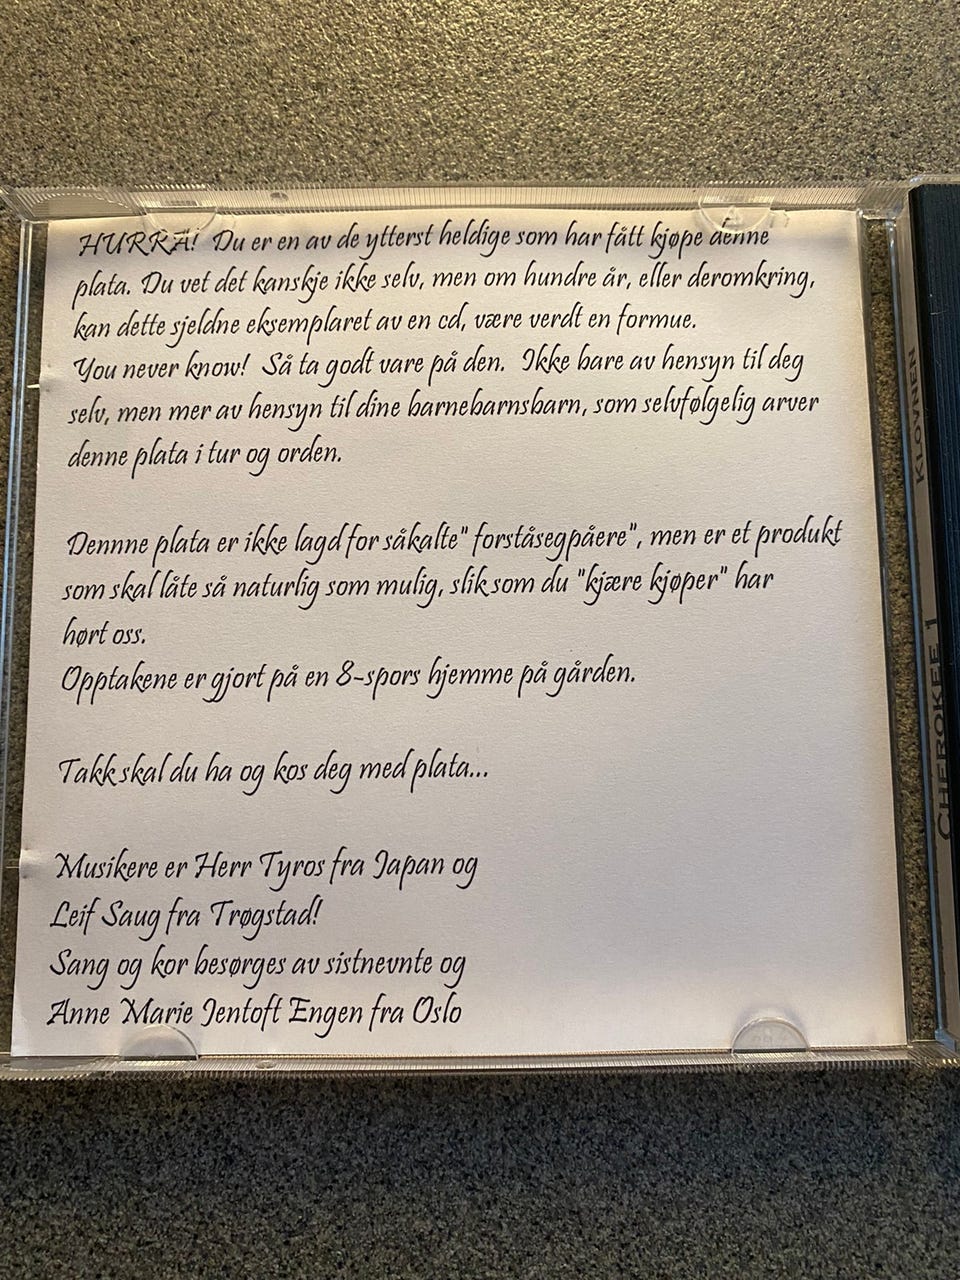 HURRA! Du er en av de ytterst heldige som har fått kjøpe denne
plata. Du vet det kanskje ikke selv, men om hundre år, eller deromkring,
kan dette sjeldne eksemplaret av en cd, være verdt en formue.
You never know! Så ta godt vare på den. Ikke bare av hensyn til deg
selv, men mer av hensyn til dine barnebarnsbarn, som selvfølgelig arver
denne plata i tur og orden.
Dennne plata er ikke lagd for såkalte" forståsegpåere", men er et produkt
som skal låte så naturlig som mulig, slik som du "kjære kjøper" har
hørt oss.
Opptakene er gjort på en 8-spors hjemme på gården.
Takk skal du ha og kos deg med plata...
Musikere er Herr Tyros fra Japan og
Leif Saug fra Trøgstad!
Sang og kor besørges av sistnevnte og
Anne Marie Jentoft Engen fra Oslo
KLOVNEN
CHEROKEE 1